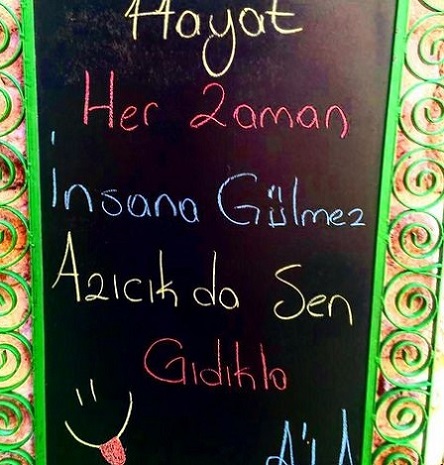 Hayat
Her Zaman
İnsana Gülmez
Azıcık da Sen
Gıdıkla